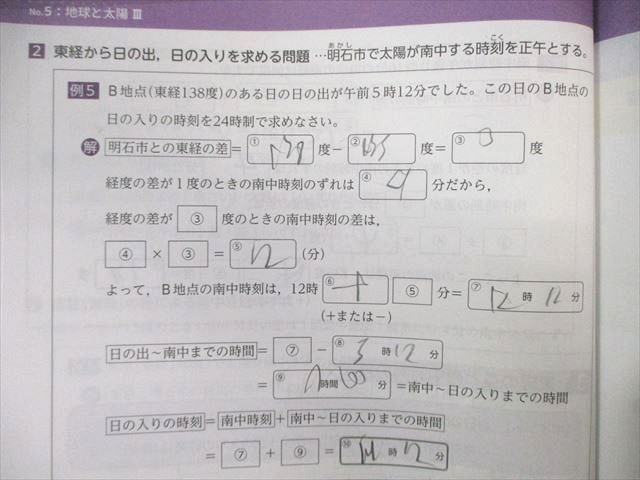 No.5：地球と太陽 Ⅲ
2 東経から日の出，日の入りを求める問題 …明石市で太陽が南中する時刻を正午とする。
あかし こく
例5 B地点(東経138度)のある日の日の出が午前5時12分でした。この日のB地点の
日の入りの時刻を24時制で求めなさい。
解 明石市との東経の差＝① 度－② 度＝③ 度
経度の差が1度のときの南中時刻のずれは④ 4 分だから，
経度の差が ③ 度のときの南中時刻の差は，
④ × ③ ＝⑤ 12 (分)
よって，B地点の南中時刻は，12時⑥ ⑤ 分＝⑦ 12 時 12 分
(＋または－)
日の出～南中までの時間＝ ⑦ －⑧ 時 12 分
＝⑨ 時間 分 ＝南中～日の入りまでの時間
日の入りの時刻＝南中時刻＋南中～日の入りまでの時間
＝ ⑦ ＋ ⑨ ＝⑩ 時 12 分